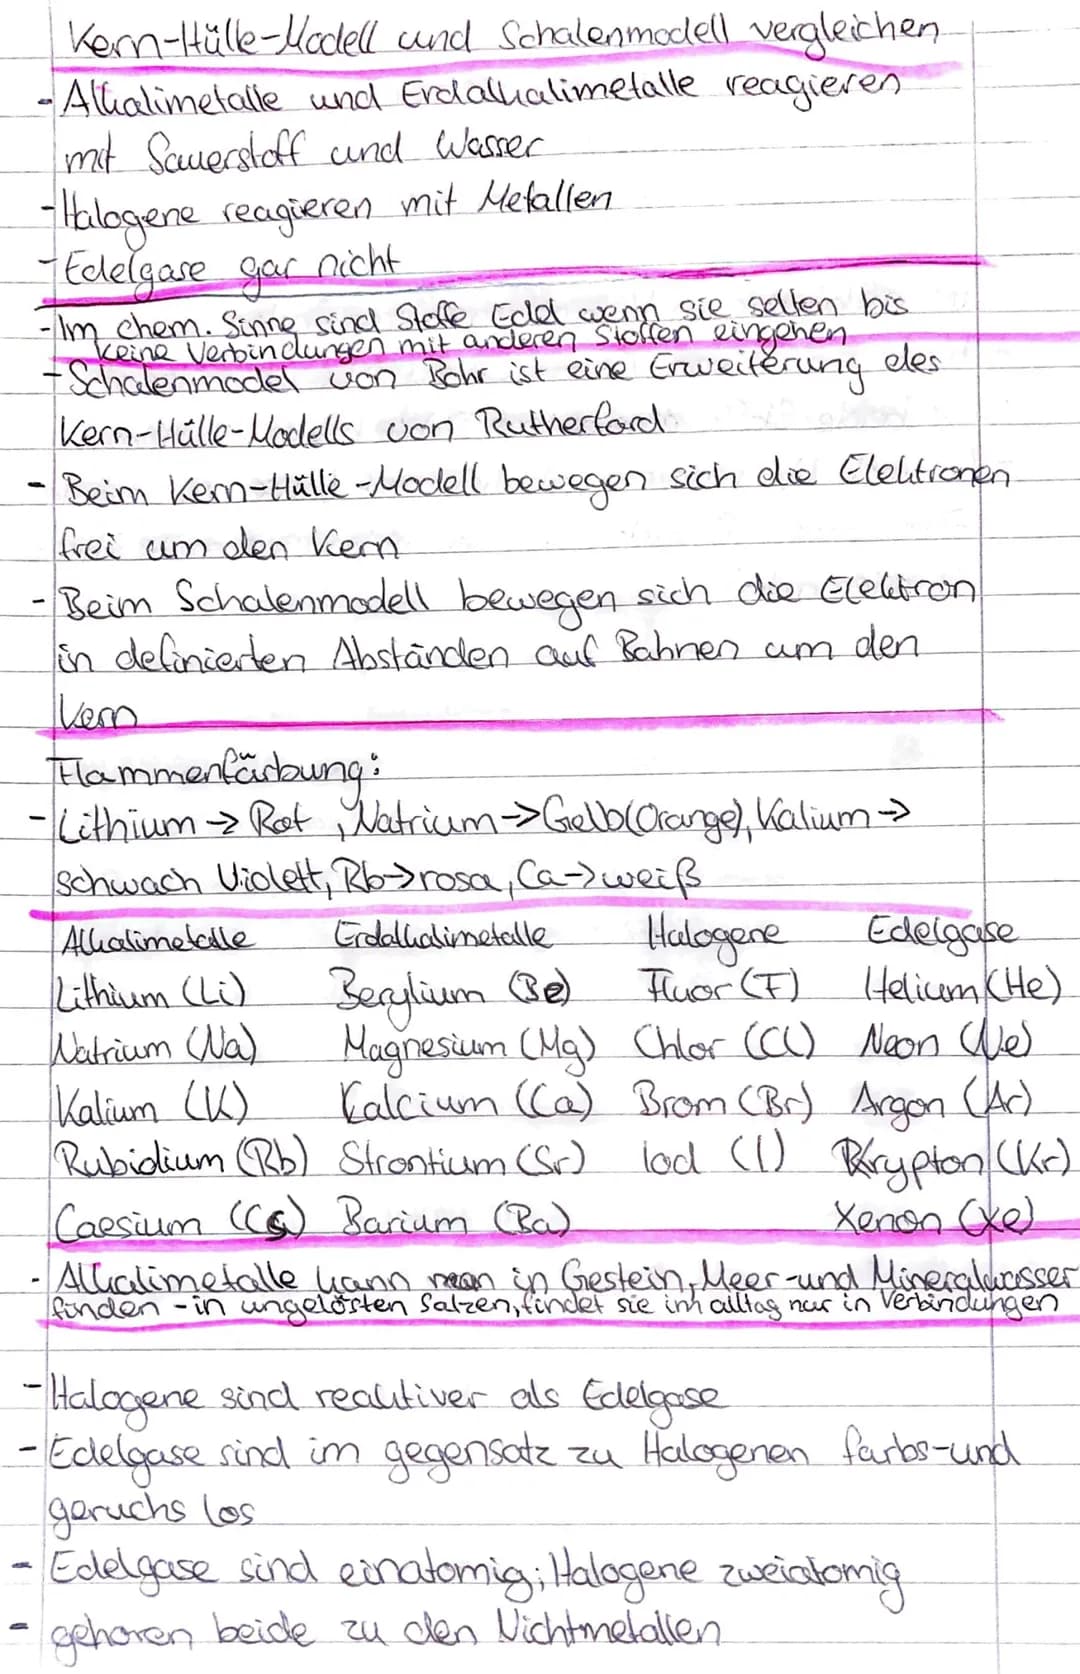 Kern-Hülle-Modell und Schalenmodell vergleichen
- Alkalimetalle und Erdalkalimetalle reagieren
mit Sauerstoff und Wasser
- Halogene reagieren mit Metallen
- Edelgase gar nicht
- Im chem. Sinne sind Stoffe Edel wenn sie selten bis
keine Verbindungen mit anderen Stoffen eingehen
- Schalenmodel von Bohr ist eine Erweiterung des
Kern-Hülle-Modells von Rutherford
- Beim Kern-Hülle-Modell bewegen sich die Elektronen
frei um den Kern
- Beim Schalenmodell bewegen sich die Elektron
in definierten Abständen auf Bahnen um den
Kern
Flammenfärbung:
- Lithium → Rot, Natrium → Gelb(Orange), Kalium →
schwach Violett, Rb → rosa, Ca → weiß
Alkalimetalle Erdalkalimetalle Halogene Edelgase
Lithium (Li) Berylium (Be) Fluor (F) Helium (He)
Natrium (Na) Magnesium (Mg) Chlor (Cl) Neon (Ne)
Kalium (K) Kalcium (Ca) Brom (Br) Argon (Ar)
Rubidium (Rb) Strontium (Sr) Iod (I) Krypton (Kr)
Caesium (Cs) Barium (Ba) Xenon (Xe)
- Alkalimetalle kann man in Gestein, Meer-und Mineralwasser
finden - in ungelösten Salzen, findet sie im alltag nur in Verbindungen
- Halogene sind reaktiver als Edelgase
- Edelgase sind im gegensatz zu Halogenen farbs-und
geruchs los
- Edelgase sind einatomig; Halogene zweiatomig
- gehören beide zu den Nichtmetallen